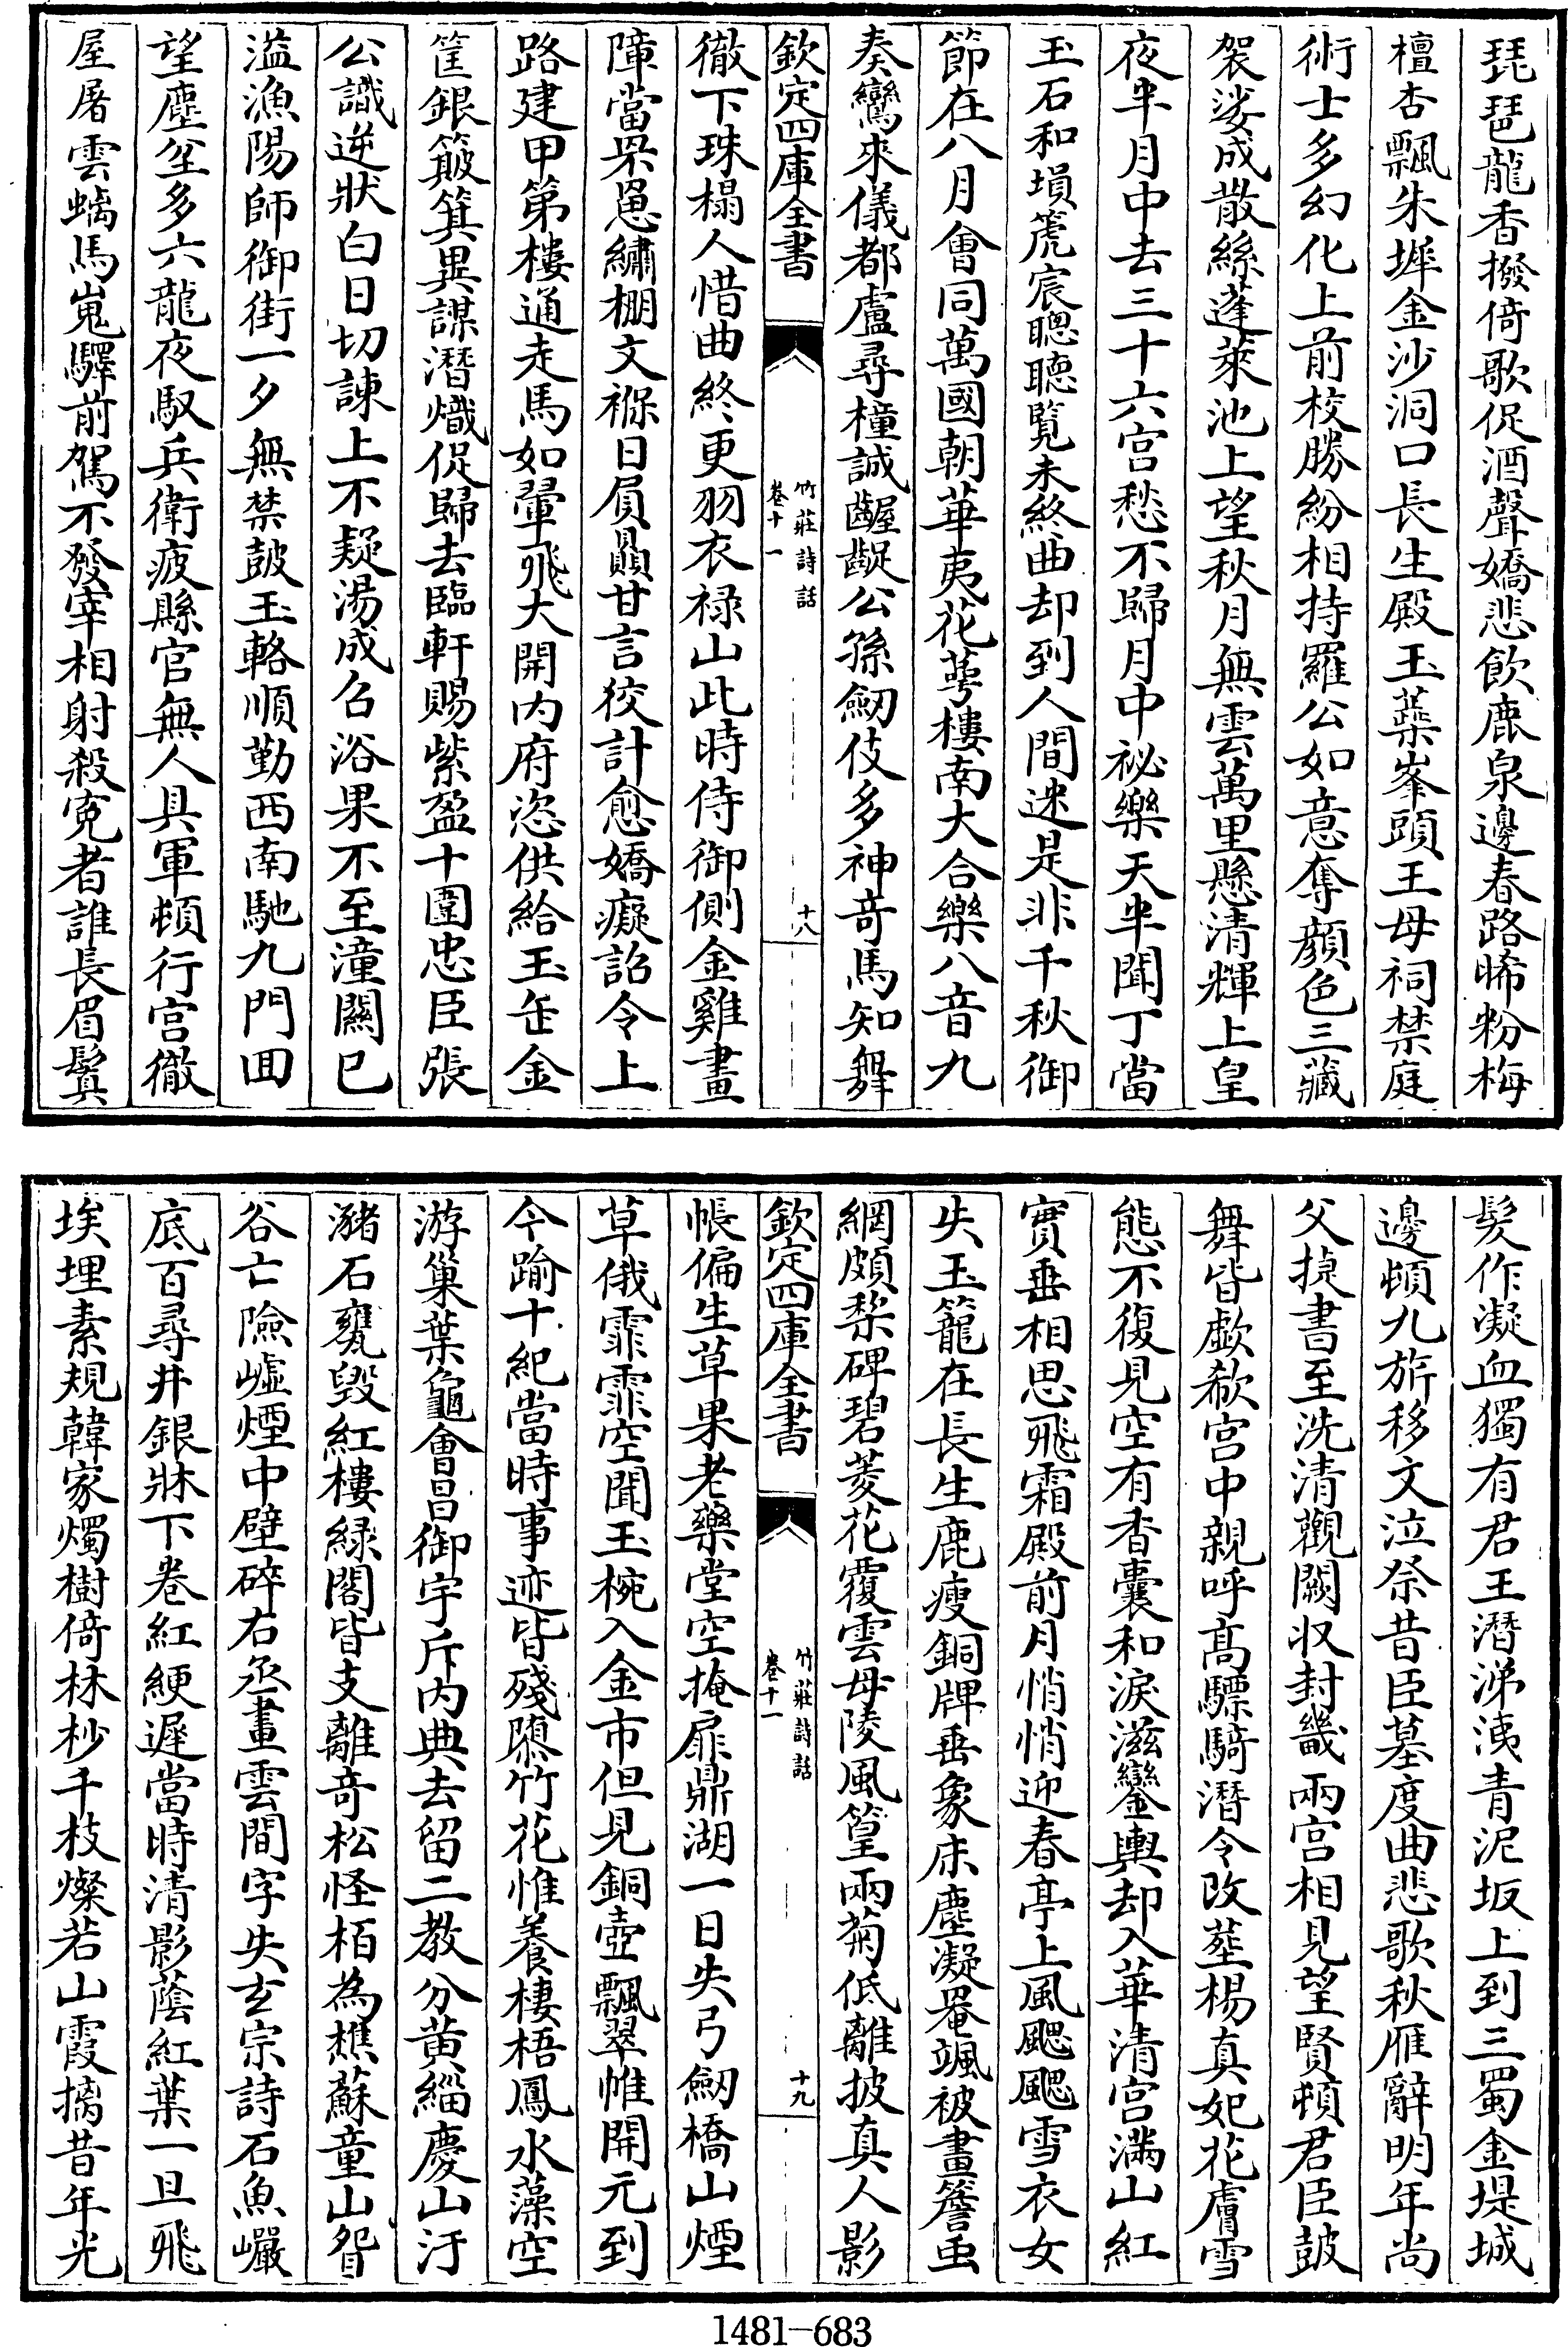 琵琶龍香撥倚歌促酒聲嬌悲飲鹿泉邊春路晞粉梅
檀杏飄朱墀金沙洞口長生殿玉蘂峯頭王母祠禁庭
術士多幻化上前校勝紛相持羅公如意奪顔色三藏
袈裟成散絲蓬萊池上望秋月無雲萬里懸清輝上皇
夜半月中去三十六宫愁不歸月中秘樂天半聞丁當
玉石和塤箎宸聰聽覧未終曲却到人間迷是非千秋御
節在八月會同萬國朝華夷花萼樓南大合樂八音九
奏鸞來儀都盧尋橦誠齷齪公孫劒伎多神竒馬知舞
欽定四庫全書
竹莊詩話
卷十一
十八
徹下珠榻人惜曲終更羽衣禄山此時侍御側金雞畫
障當罘罳繡棚文褓日屓贔甘言狡計愈嬌癡詔令上
路建甲第樓通走馬如翬飛大開内府恣供給玉缶金
筐銀簸箕異謀潛熾促歸去臨軒賜紫盈十圍忠臣張
公識逆狀白日切諫上不疑湯成召浴果不至潼關已
溢漁陽師御街一夕無禁鼓玉輅順動西南馳九門回
望塵坌多六龍夜馭兵衛疲縣官無人具軍頓行宫徹
屋屠雲螭馬嵬驛前駕不發宰相射殺寃者誰長眉鬒
髮作凝血獨有君王潛涕洟青泥坂上到三蜀金堤城
邊頓九旂移文泣祭昔臣墓度曲悲歌秋雁辭明年尚
父捷書至洗清觀闕収封畿兩宫相見望賢頓君臣鼓
舞皆歔欷宫中親呼髙驃騎潛令改塟楊真妃花膚雪
態不復見空有香囊和淚滋鑾輿却入華清宫滿山紅
實垂相思飛霜殿前月悄悄迎春亭上風颸颸雪衣女
失玉籠在長生鹿瘦銅牌垂象床塵凝罨颯被畫簷䖝
網頗棃碑碧菱花覆雲母陵風篁雨菊低離披真人影
欽定四庫全書
竹莊詩話
卷十一
十九
帳偏生草果老藥堂空掩扉鼎湖一日失弓劒橋山煙
草俄霏霏空聞玉椀入金市但見銅壺飄翠帷開元到
今踰十紀當時事迹皆殘隳竹花惟養棲梧鳳水藻空
游巢葉龜會昌御宇斥内典去留二教分黄緇慶山汙
瀦石甕毁紅樓緑閣皆支離竒松怪栢為樵蘇童山眢
谷亡險巇煙中壁碎右丞畫雲間字失𤣥宗詩石魚巖
底百尋井銀牀下卷紅綆遲當時清影蔭紅葉一旦飛
埃埋素規韓家燭樹倚林杪千枝燦若山霞摛昔年光
1481-683